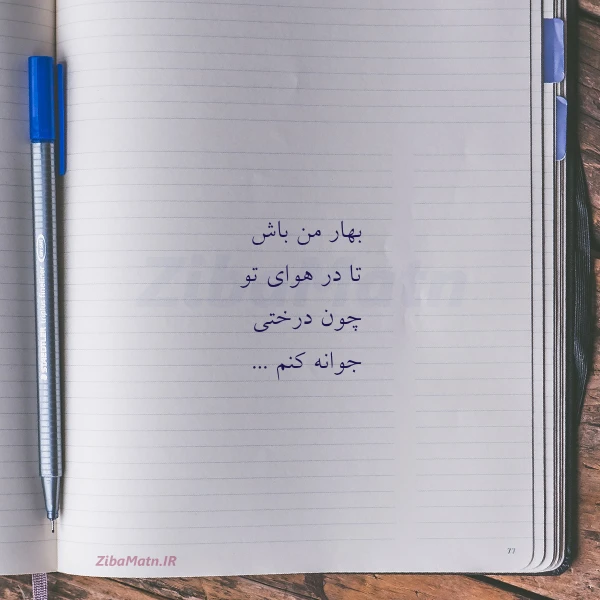 بهار من باش
تا در هوای تو
چون درختی
جوانه کنم ...
ZibaMatn
ZibaMatn.IR